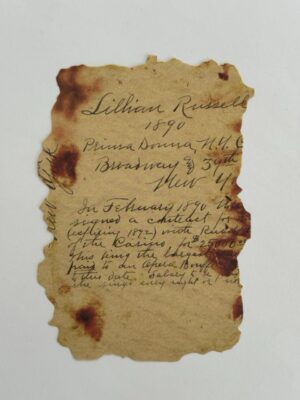 Lillian Russell
1890
Prima Donna, N.Y.C
Broadway & 39th
New Y
In February 1890
signed a contract for
(expiring 1892) with
of the Casino, for
this being the largest
paid to an Opera
to this date. Salary
she sings every night or not